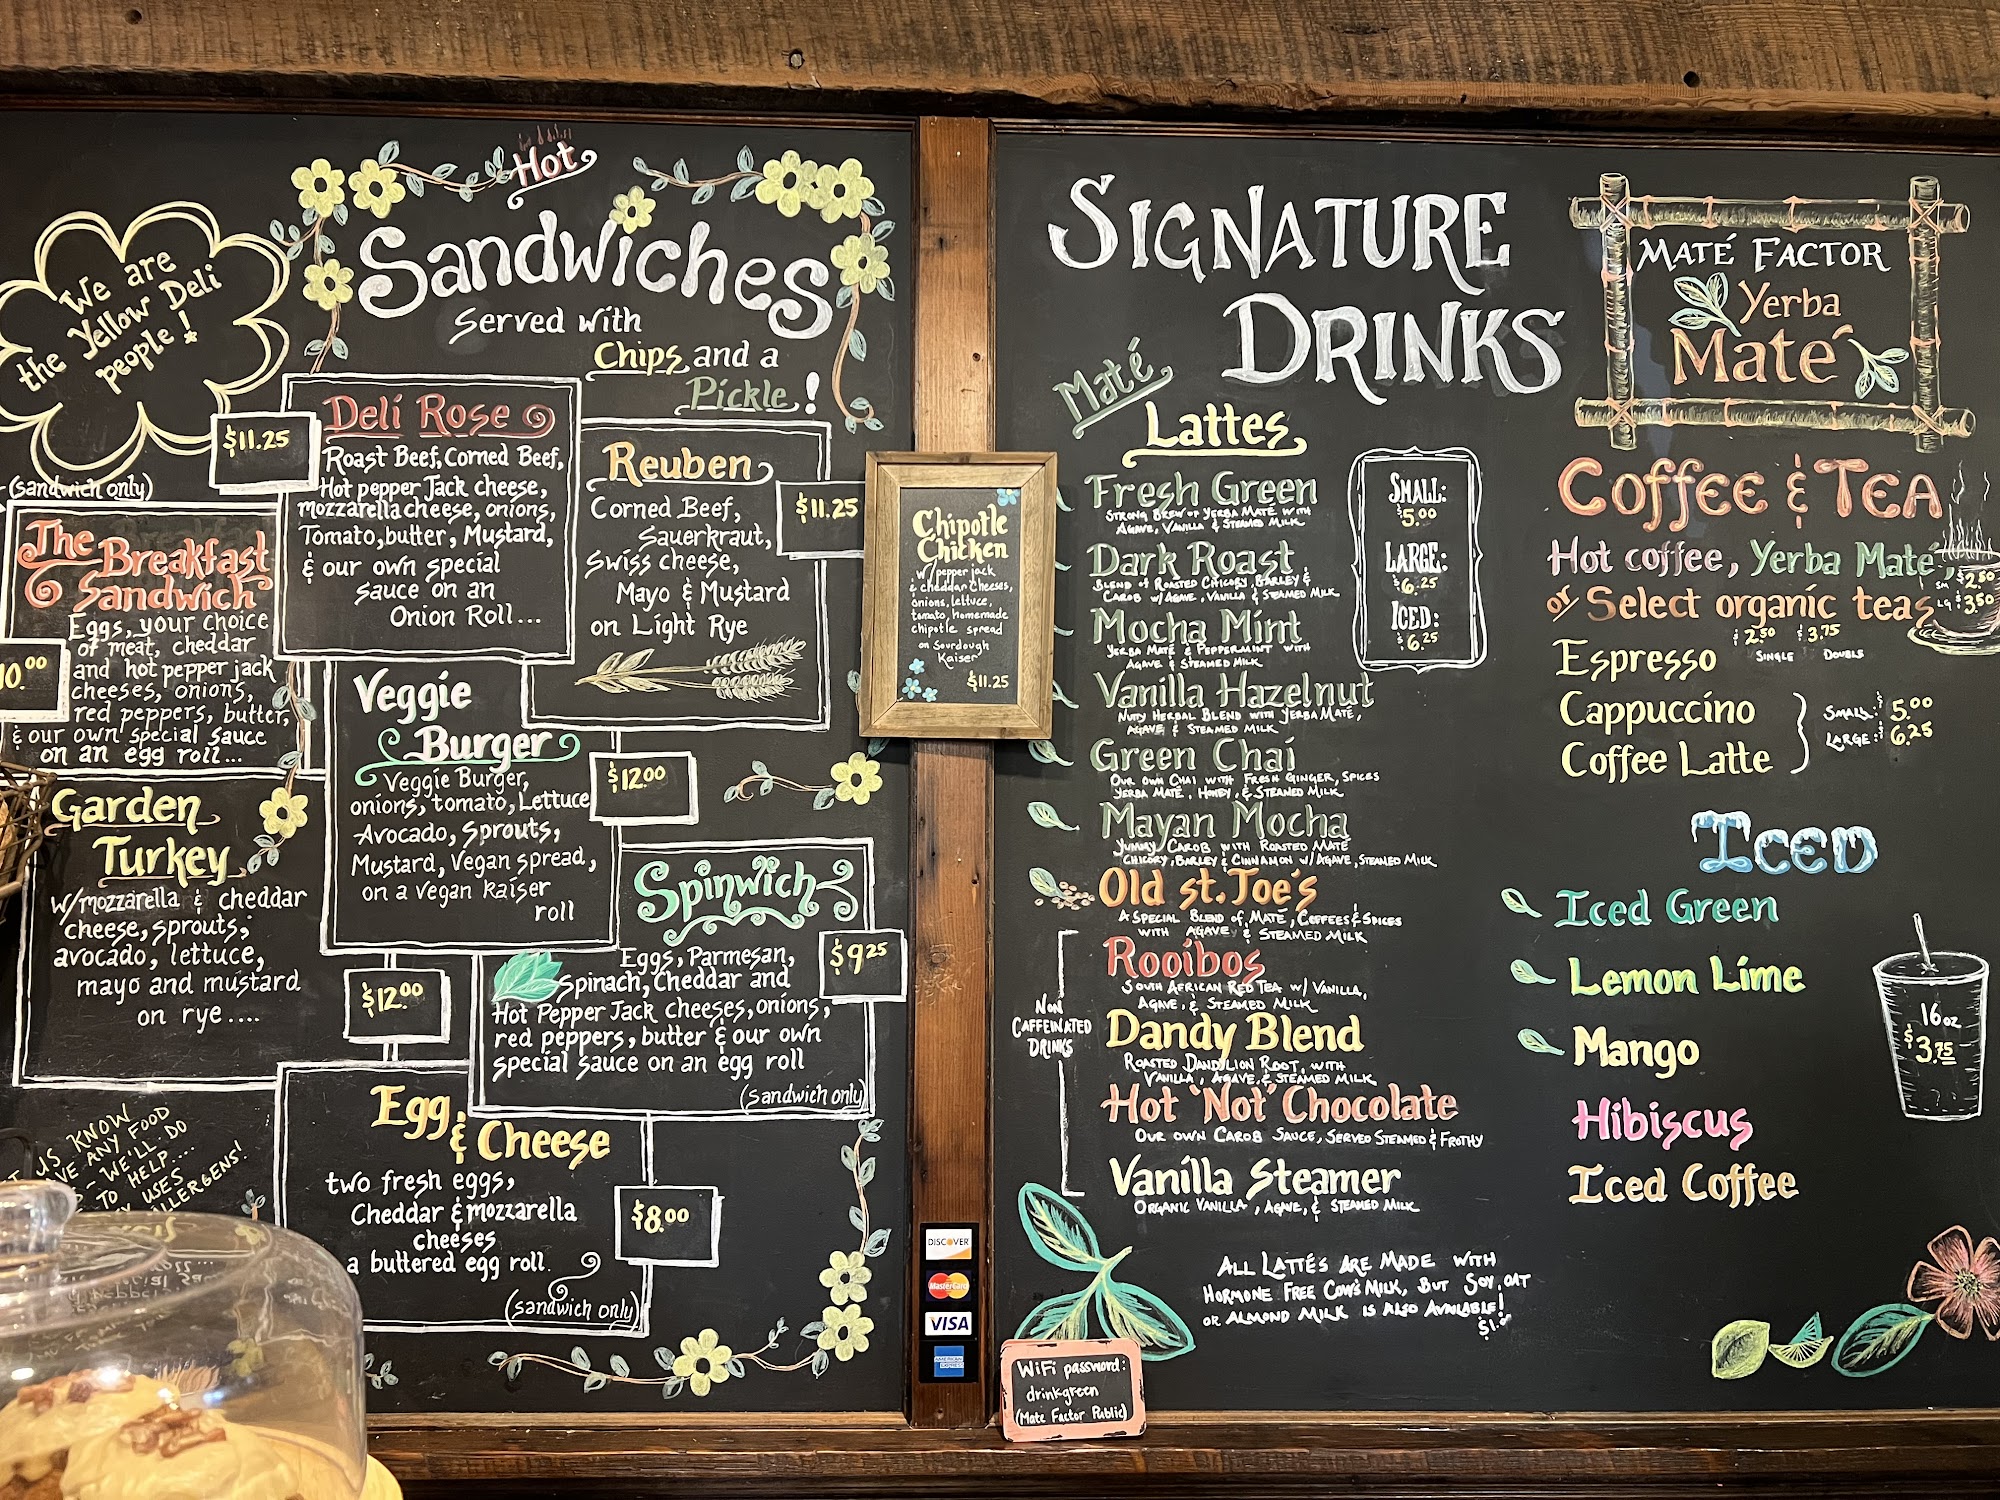 We are
the Yellow Deli
people!
Hot
Sandwiches
Served with
Chips and a
Pickle!
(sandwich only)
The Breakfast
Sandwich
Eggs, your choice
of meat, cheddar
and hot pepper jack
cheeses, onions,
red peppers, butter,
& our own special sauce
on an egg roll...
10.00
Deli Rose
$11.25
Roast Beef, Corned Beef,
Hot pepper Jack cheese,
mozzarella cheese, onions,
Tomato, butter, Mustard,
& our own special
sauce on an
Onion Roll...
Reuben
$11.25
Corned Beef,
Sauerkraut,
Swiss cheese,
Mayo & Mustard
on Light Rye
Veggie
Burger
$12.00
Veggie Burger,
onions, tomato, Lettuce
Avocado, Sprouts,
Mustard, Vegan spread,
on a vegan kaiser
roll
Garden
Turkey
w/mozzarella & cheddar
cheese, sprouts,
avocado, lettuce,
mayo and mustard
on rye....
$12.00
Spinwich
$9.25
Eggs, Parmesan,
Spinach, Cheddar and
Hot Pepper Jack cheeses, onions,
red peppers, butter & our own
special sauce on an egg roll
(sandwich only)
Egg
& Cheese
two fresh eggs,
Cheddar & mozzarella
cheeses
a buttered egg roll.
$8.00
(sandwich only)
US KNOW
ANY FOOD
WE'LL DO
TO HELP....
USES
ALLERGENS!
Chipotle
Chicken
w/ pepper jack
& cheddar cheeses,
onions, lettuce,
tomato, homemade
chipotle spread
on Sourdough
Kaiser
$11.25
DISCOVER
MasterCard
VISA
AMERICAN EXPRESS
SIGNATURE
DRINKS
Maté
Lattes
Fresh Green
STRONG BREW OF YERBA MATE WITH
AGAVE, VANILLA & STEAMED MILK
Dark Roast
BLEND OF ROASTED CHICORY, BARLEY &
CAROB W/ AGAVE, VANILLA & STEAMED MILK
Mocha Mint
YERBA MATE & PEPPERMINT WITH
AGAVE & STEAMED MILK
Vanilla Hazelnut
NUTY HERBAL BLEND WITH YERBA MATE,
AGAVE & STEAMED MILK
Green Chai
OUR OWN CHAI WITH FRESH GINGER, SPICES
YERBA MATE, HONEY, & STEAMED MILK
Mayan Mocha
YUMMY CAROB WITH ROASTED MATE
CHICORY, BARLEY & CINNAMON W/ AGAVE, STEAMED MILK
Old St. Joe's
A SPECIAL BLEND OF MATE, COFFEES & SPICES
WITH AGAVE & STEAMED MILK
NON
CAFFEINATED
DRINKS
Rooibos
SOUTH AFRICAN RED TEA W/ VANILLA,
AGAVE, & STEAMED MILK
Dandy Blend
ROASTED DANDYLION ROOT, WITH
VANILLA, AGAVE, & STEAMED MILK
Hot "Not" Chocolate
OUR OWN CAROB SAUCE, SERVED STEAMED & FROTHY
Vanilla Steamer
ORGANIC VANILLA, AGAVE, & STEAMED MILK
SMALL:
$5.00
LARGE:
$6.25
ICED:
$6.25
ALL LATTÉS ARE MADE WITH
HORMONE FREE COW'S MILK, BUT SOY, OAT
OR ALMOND MILK IS ALSO AVAILABLE!
$1.00
WiFi password:
drinkgreen
(Mate Factor Public)
MATÉ FACTOR
Yerba
Maté
COFFEE & TEA
Hot coffee, Yerba Maté,
or Select organic teas
SM $2.50
LG $3.50
Espresso
$2.50 SINGLE
$3.75 DOUBLE
Cappuccino
Coffee Latte
SMALL: $5.00
LARGE: $6.25
ICED
Iced Green
Lemon Lime
Mango
Hibiscus
Iced Coffee
16 oz
$3.75